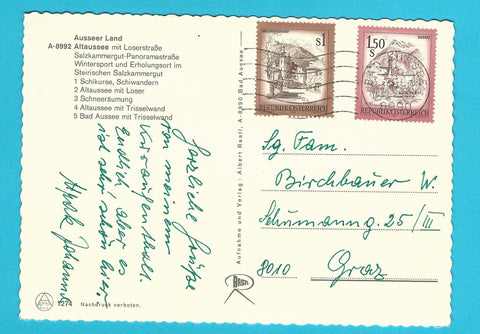 Ausseer Land
A-8992 Altaussee mit Loserstraße
Salzkammergut-Panoramastraße
Wintersport und Erholungsort im
Steirischen Salzkammergut
1 Schikurse, Schiwandern
2 Altaussee mit Loser
3 Schneeräumung
4 Altaussee mit Trisselwand
5 Bad Aussee mit Trisselwand
Herzliche Grüße
von meinem
Kuraufenthalt.
Endlich aber es
ist sehr schön hier,
Johann
1274 Nachdruck verboten.
Aufnahme und Verlag: Albert Rastl, A-8990 Bad Aussee
S1
REPUBLIK ÖSTERREICH
1.50 S
RUST
REPUBLIK ÖSTERREICH
8990
Sg. Fam.
Birchbauer W.
Schumanng 25/III
8010 Graz